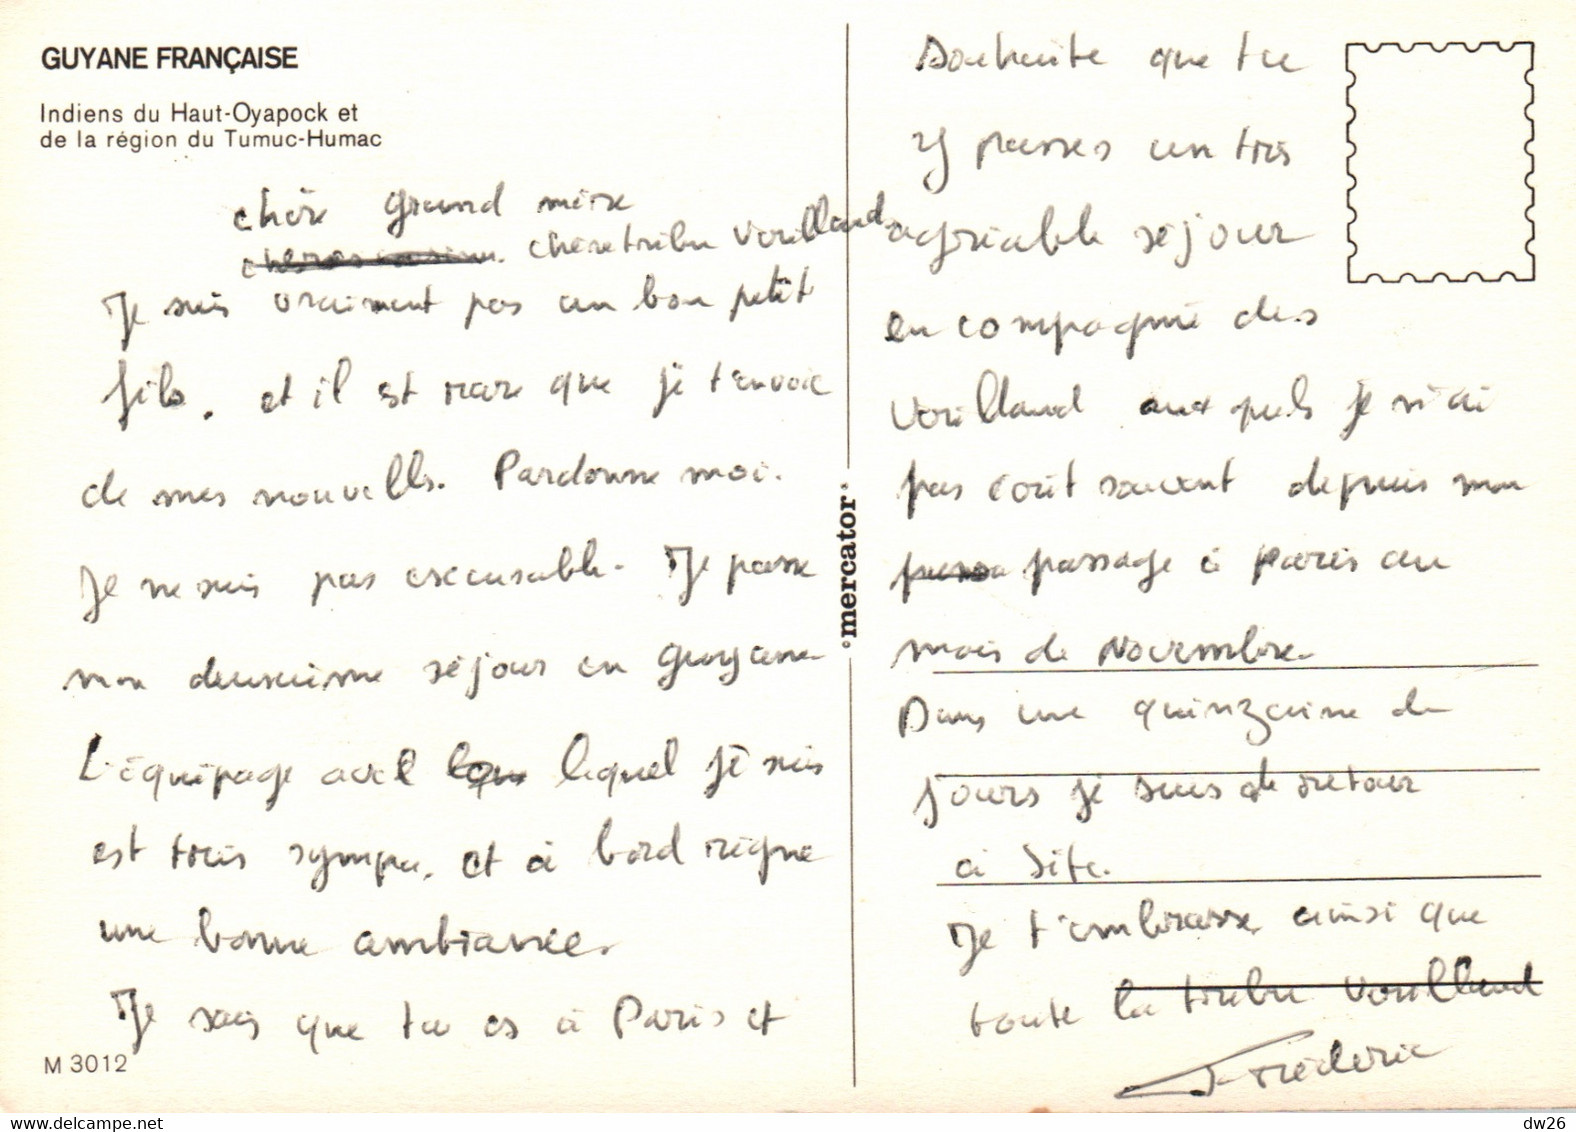 GUYANE FRANÇAISE
Indiens du Haut-Oyapock et
de la région du Tumuc-Humac
chère grand mère
chère tribu Vorilland
Je suis vraiment pas un bon petit
fils. et il est rare que je t'envoie
de mes nouvelles. Pardonne moi.
Je ne suis pas excusable. Je passe
mon deuxième séjour en Guyane
L'équipage avec lequel je suis
est très sympa, et à bord règne
une bonne ambiance.
Je sais que tu es à Paris et
M 3012
mercator
souhaite que tu
y passes un très
agréable séjour
en compagnie des
Vorilland auxquels je n'ai
pas écrit souvent depuis mon
passage à Paris au
mois de Novembre.
Dans une quinzaine de
jours je suis de retour
à Sète.
Je t'embrasse, ainsi que
toute la tribu Vorilland
Frédéric
www.delcampe.net
dw26